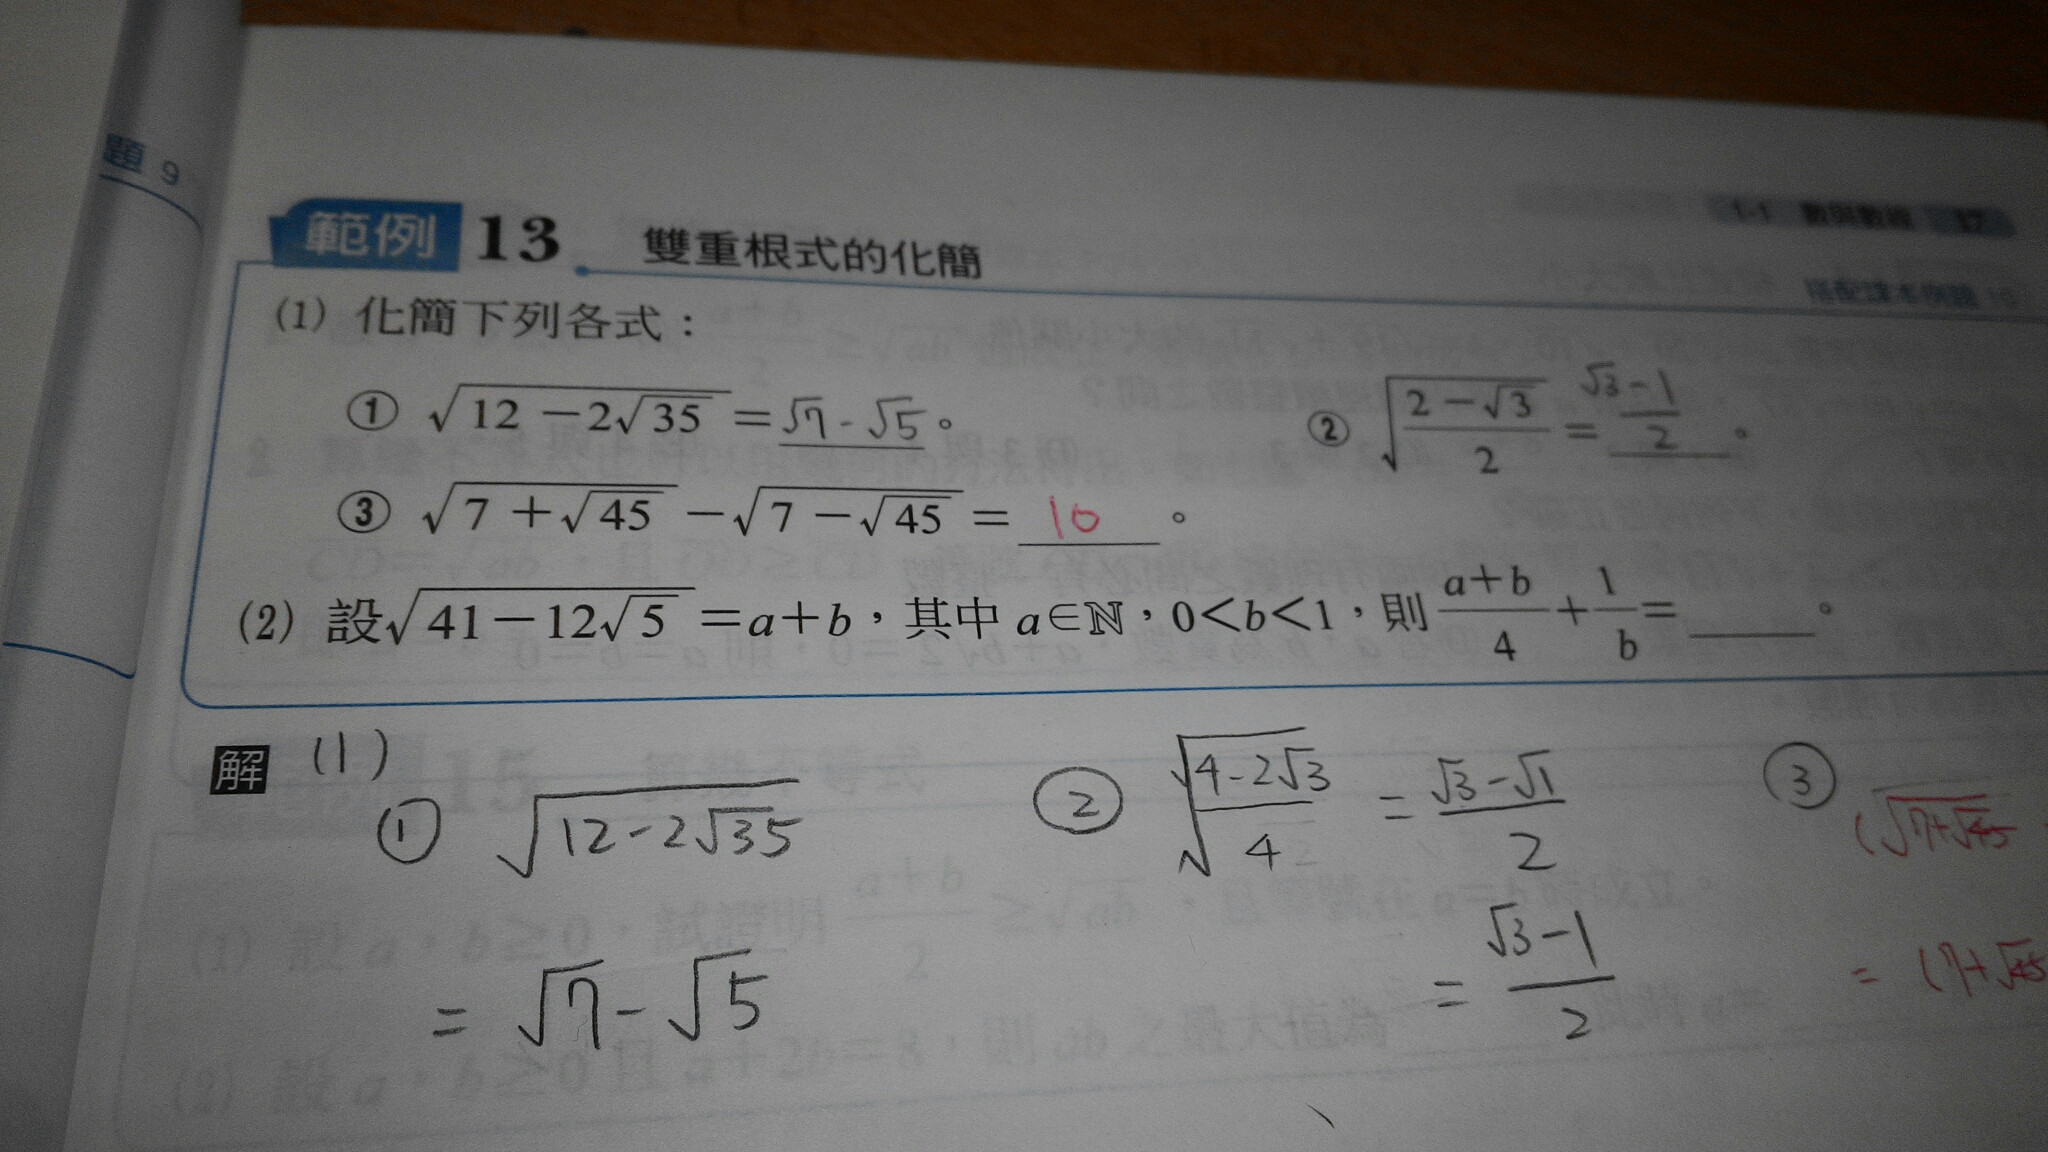 題 9
1-1 數與數線 17
範例 13 雙重根式的化簡
搭配課本例題
(1) 化簡下列各式：
① √(12－2√35)＝√7 - √5。 ② √((2－√3)/2)＝(√3-1)/2。
③ √(7＋√45)－√(7－√45)＝10。
(2) 設√(41－12√5)＝a＋b，其中 a∈ℕ，0<b<1，則 (a+b)/4＋1/b＝____。
解 (1)
① √(12-2√35) ② √((4-2√3)/4) = (√3-√1)/2 ③ (√(7+√45)
= √7-√5 = (√3-1)/2 = (7+√45